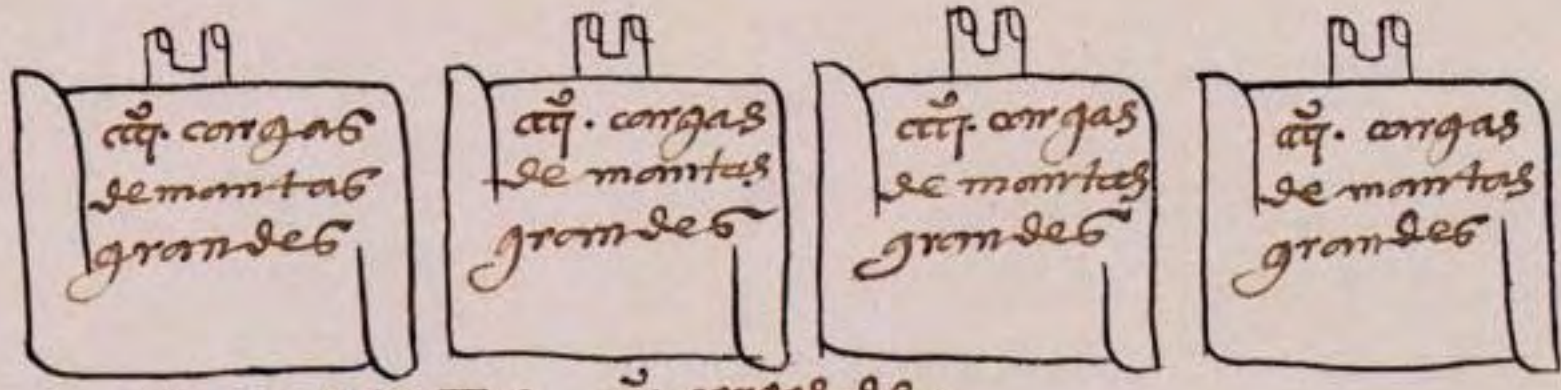 ccccº. cargas
de mantas
grandes
ccccº. cargas
de mantas
grandes
ccccº. cargas
de mantas
grandes
ccccº. cargas
de mantas
grandes
cargas de